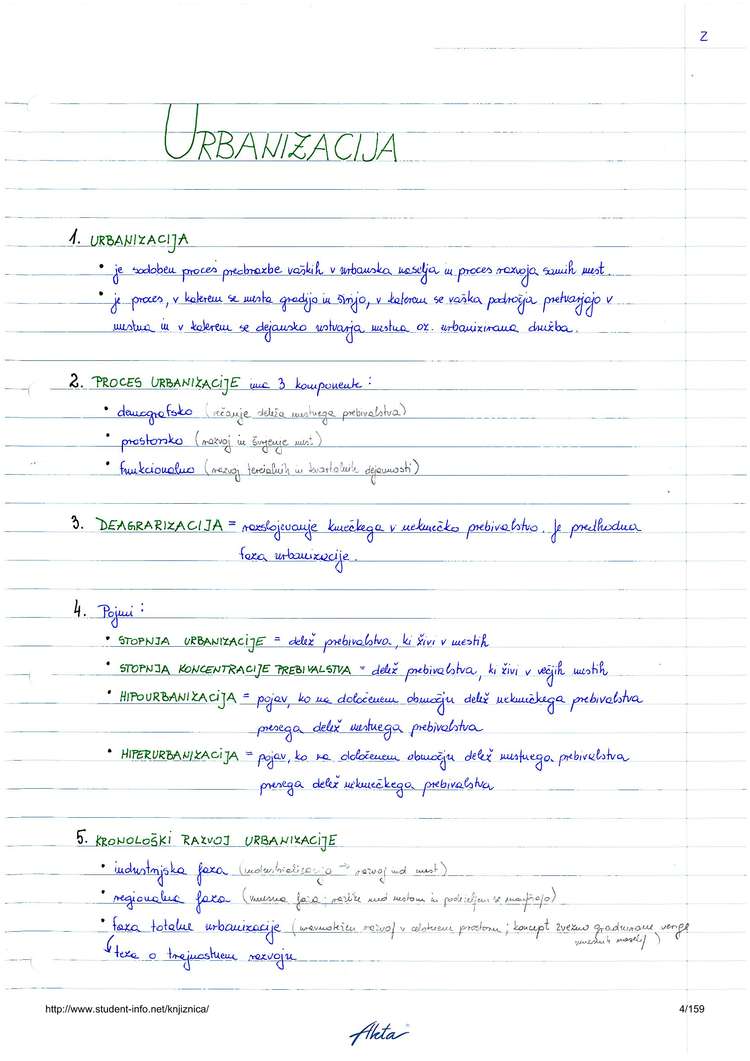 2
URBANIZACIJA
1. URBANIZACIJA
• je sodoben proces preobrazbe vaških v urbanska naselja in proces razvoja samih mest.
• je proces, v katerem se mesta gradijo in širijo, v katerem se vaška področja pretvarjajo v
mestna in v katerem se dejansko ustvarja mestna oz. urbanizirana družba.
2. PROCES URBANIZACIJE ima 3 komponente:
• demografsko (večanje deleža mestnega prebivalstva)
• prostorsko (razvoj in širjenje mest)
• funkcionalno (razvoj tercialnih in kvartalnih dejavnosti)
3. DEAGRARIZACIJA = razslojevanje kmečkega v nekmečko prebivalstvo. Je predhodna
faza urbanizacije.
4. Pojmi:
• STOPNJA URBANIZACIJE = delež prebivalstva, ki živi v mestih
• STOPNJA KONCENTRACIJE PREBIVALSTVA = delež prebivalstva, ki živi v večjih mestih
• HIPOURBANIZACIJA = pojav, ko na določenem območju delež nekmečkega prebivalstva
presega delež mestnega prebivalstva
• HIPERURBANIZACIJA = pojav, ko na določenem območju delež mestnega prebivalstva
presega delež nekmečkega prebivalstva
5. KRONOLOŠKI RAZVOJ URBANIZACIJE
• industrijska faza (industrializacija → razvoj ind. mest)
• regionalna faza (vmesna faza; razlike med mestom in podeželjem se manjšajo)
• faza totalne urbanizacije (razvoj v celotnem prostoru; koncept zvezno gradnirane
)
teza o trajnostnem razvoju
http://www.student-info.net/knjiznica/
4/159
Akta